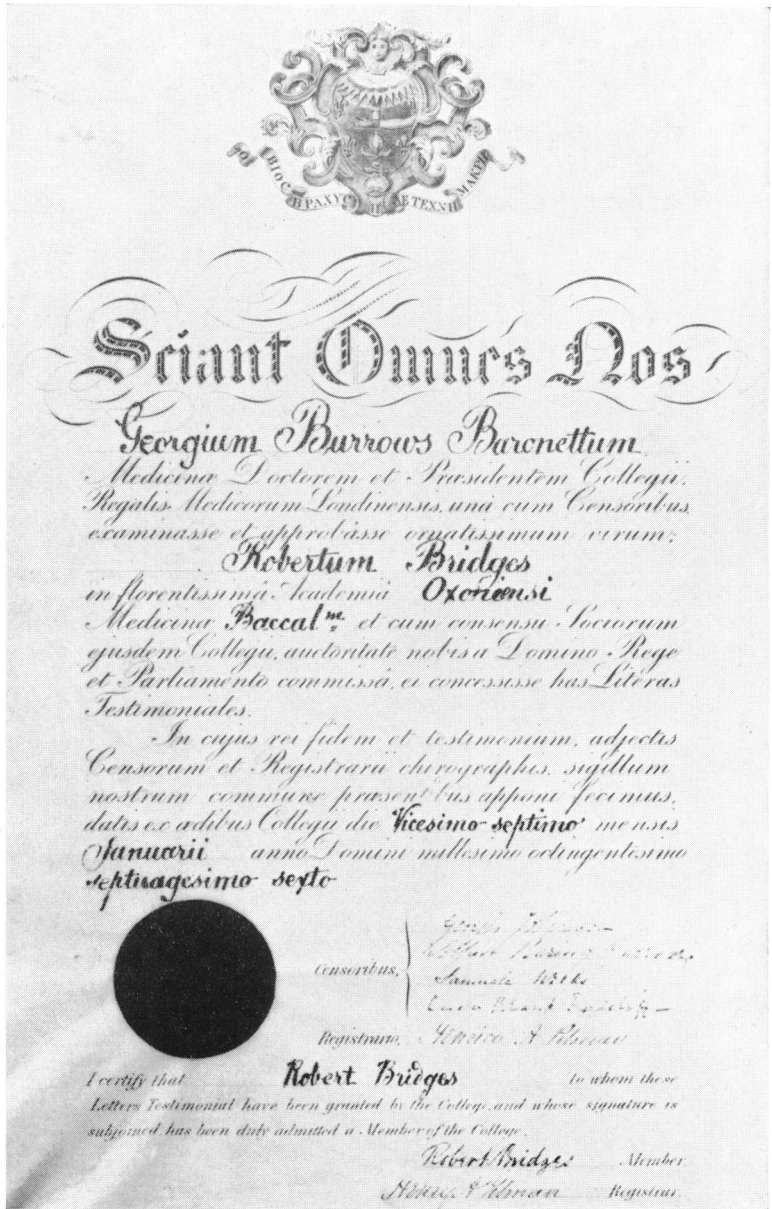 ΒΙΟΣ ΒΡΑΧΥΣ Η ΔΕ ΤΕΧΝΗ ΜΑΚΡΗ
Sciant Omnes Nos
Georgium Burrows Baronettum
Medicinæ Doctorem et Præsidentem Collegii
Regalis Medicorum Londinensis, unà cum Censoribus,
examinasse et approbâsse ornatissimum virum;
Robertum Bridges
in florentissimâ Academiâ Oxoniensi
Medicinæ Baccal^m et cum consensu Sociorum
ejusdem Collegii, auctoritate nobis a Domino Rege
et Parliamento commissâ, ei concessisse has Literas
Testimoniales.
In cujus rei fidem et testimonium, adjectis
Censorum et Registrarii chirographis, sigillum
nostrum commune præsentibus apponi fecimus,
datis ex ædibus Collegii die Vicesimo septimo mensis
Januarii anno Domini millesimo octingentesimo
septuagesimo sexto
Censoribus,
Samuele
Registrario, Henrico A
I certify that Robert Bridges to whom these
Letters Testimonial have been granted by the College, and whose signature is
subjoined has been duly admitted a Member of the College.
Robert Bridges Member.
Henry A Pitman Registrar.